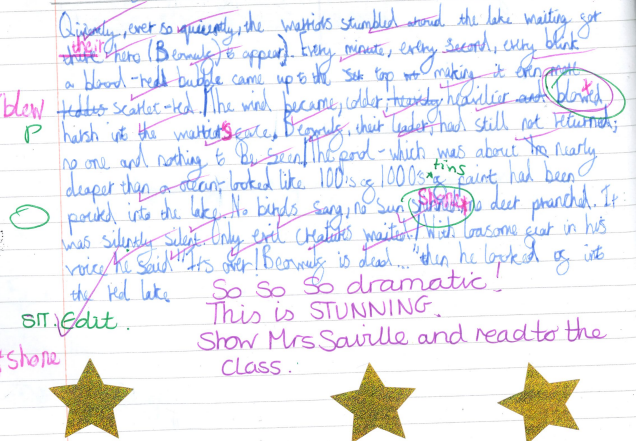 Quiently, ever so quiently, the warriors stumbled around the lake waiting for
their hero (Beowulf) to appear). Every minute, every second, every blink
a blood-red bubble came up to the top making it even
scarlet-red. The wind became, colder, heavilier and blowed
harsh into the warriors face. Beowulf, their leader, had still not returned;
no one and nothing to By seen! The pond - which was about nearly
deaper than a ocean, looked like 100's of 1000s of tins paint had been
poured into the lake. No birds sang, no sun no deer pranched. It
was silently silent. Only evil creators waited! With loasome fear in his
voice he said "It's over! Beowulf is dead..." then he looked of into
the red lake
So So So dramatic!
This is STUNNING.
Show Mrs Saville and read to the
class.
blew
P
SIT. Edit.
*shone